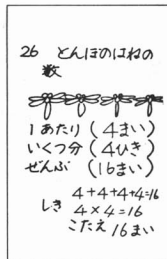 26 とんぼのはねの
数
1あたり(4まい)
いくつ分(4ひき)
ぜんぶ(16まい)
4+4+4+4=16
しき 4×4=16
こたえ 16まい